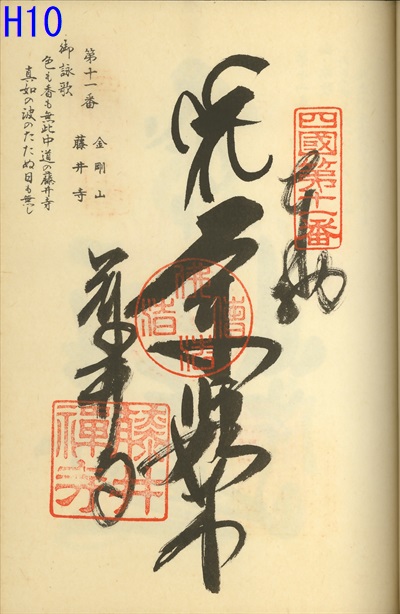 H10
四國第十一番
奉納
薬師如来
藤井寺
藤井禅寺
第十一番
金剛山
藤井寺
御詠歌
色も香も無比中道の藤井寺
真如の波のたたぬ日も無し